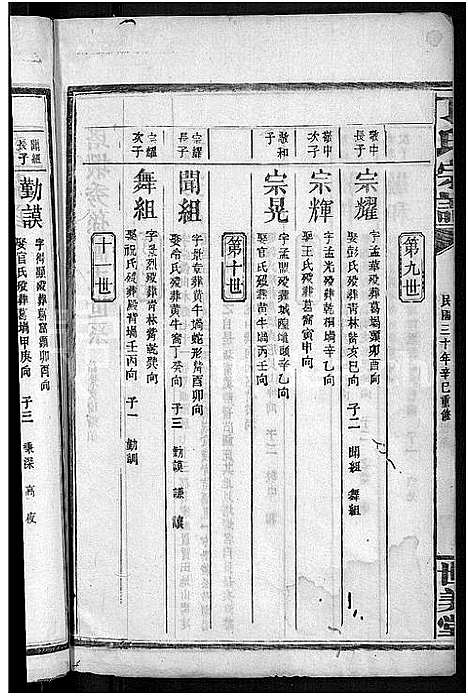 丁氏宗譜
民國三十年辛巳重修
世美堂
第九世
敬中長子
宗耀
字孟華殁葬葛塆頭卯酉向
娶彭氏殁葬青林背亥巳向 子二 聞組 舞組
敬中次子
宗輝
字孟光殁葬塆辛乙向
娶王氏殁葬葛窩寅申向
敬和子
宗晃
字孟顯殁葬城隍頭辛乙向
娶官氏殁葬黃牛塆
第十世
宗耀長子
聞組
字景韋殁葬黃牛塆蛇形酉卯向
娶俞氏殁葬黃牛窩丁癸向 子三 勤謨 謙
宗耀次子
舞組
字景烈殁葬青林背乾巽向
娶祝氏殁葬殿背塆壬丙向 子一 勤
十一世
聞組長子
勤謨
字得顯殁葬葛富頭卯酉向
娶官氏殁葬葛塆甲庚向 子三 秉深 高 夜